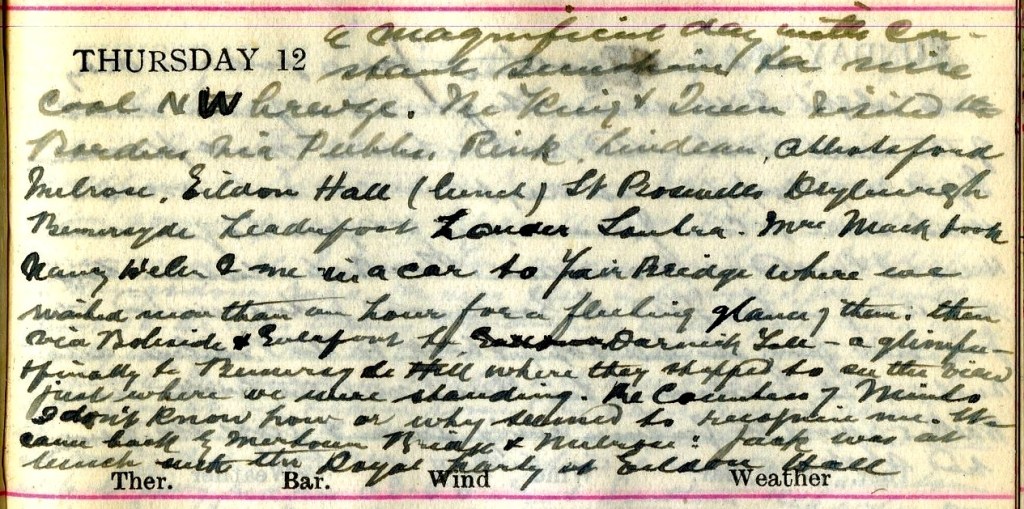 a magnificent day with con-
THURSDAY 12 stant sunshine & a nice
cool NW breeze. The King & Queen visited the
Borders via Peebles, Rink, Lindean, Abbotsford
Melrose, Eildon Hall (lunch) St Boswells Dryburgh
Bemersyde Leaderfoot Lauder Soutra. Mrs Mack took
Nancy Helen & me in a car to Yair Bridge where we
waited more than an hour for a fleeting glance of them: then
via Boleside & to Darnick Toll - a glimpse -
& finally to Bemersyde Hill where they stopped to see the view
just where we were standing. The Countess of Minto
I don't know how or why seemed to recognise me. We
came back by Mertoun Bridge & Melrose: Jack was at
lunch with the Royal Party at Eildon Hall
Ther. Bar. Wind Weather